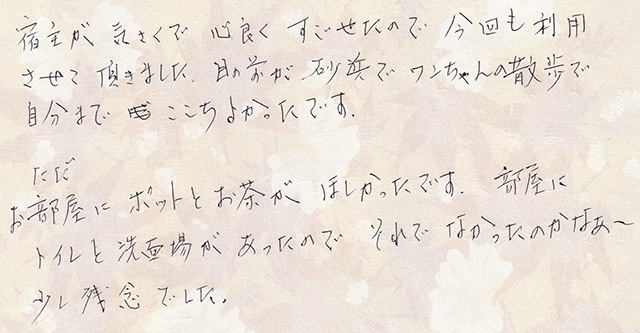 宿主が 気さくで 心良く すごせたので 今回も 利用
させて 頂きました. 目の前が 砂浜で ワンちゃんの散歩で
自分まで ここちよかったです.
ただ
お部屋に ポットとお茶が ほしかったです. 部屋に
トイレと 洗面場が あったので それで なかったのかなぁ〜
少し 残念でした。